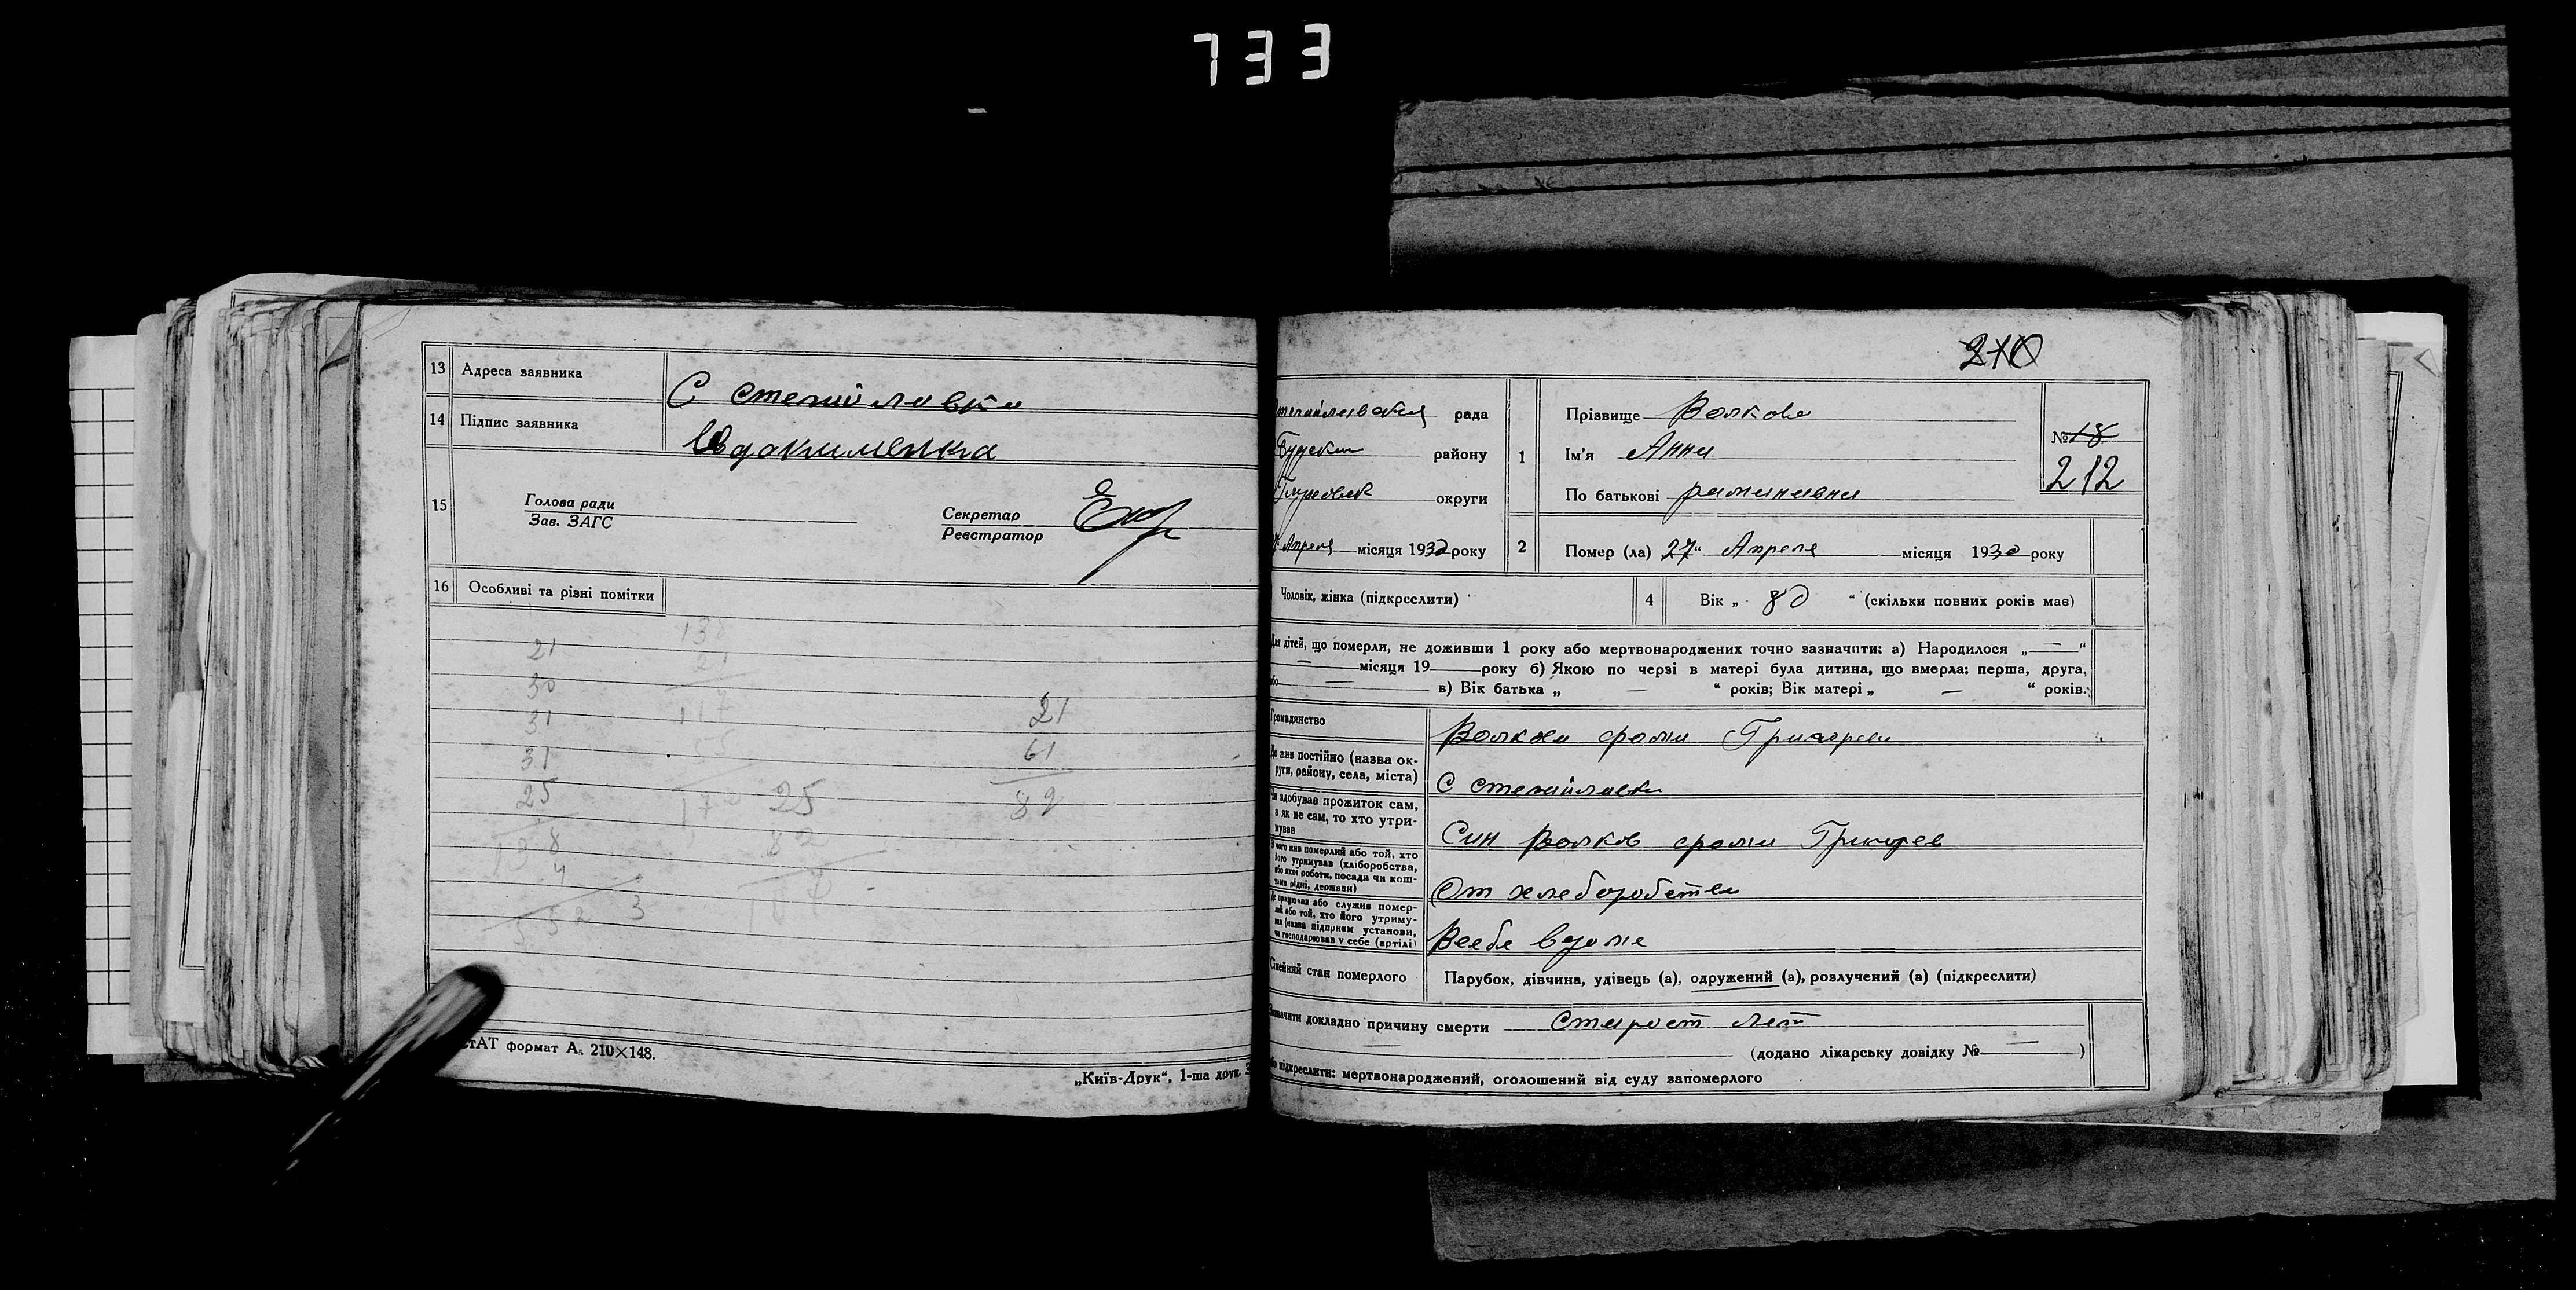 733
13 Адреса заявника
С степайловка
14 Підпис заявника
Евдокименка
15 Голова ради
Зав. ЗАГС
Секретар
Реєстратор
16 Особливі та різні помітки
21
30
31
31
25
138
4
552 3
138
21
117
55
172
25
82
107
21
61
82
формат А₅ 210×148.
„Київ-Друк“, 1-ша друк.
210
рада
району
округи
Апреля місяця 1930 року
1
Прізвище Волкова
Ім'я Анна
По батькові романавна
№ 18
212
2 Помер (ла) 27 " Апреля місяця 1930 року
Чоловік, жінка (підкреслити)
4 Вік „ 80 “ (скільки повних років має)
Для дітей, що померли, не доживши 1 року або мертвонароджених точно зазначити: а) Народилося „—“
— місяця 19 — року б) Якою по черзі в матері була дитина, що вмерла: перша, друга,
або — в) Вік батька „ — “ років; Вік матері „ — “ років.
Громадянство
Волков фома Григорев
Де жив постійно (назва ок-
руги, району, села, міста)
С степайловка
Чи здобував прожиток сам,
а як не сам, то хто утри-
мував
Син Волков фома Григорев
З чого жив померлий або той, хто
його утримував (хліборобства,
або якої роботи, посади чи кош-
тами рідні, держави)
От хлеборобства
Де працював або служив помер-
лий або той, хто його утриму-
вав (назва підприєм установи,
чи господарював у себе (артілі)
Всебе вдоме
Сімейний стан померлого
Парубок, дівчина, удівець (а), одружений (а), розлучений (а) (підкреслити)
Зазначити докладно причину смерти Старост лет
(додано лікарську довідку № — )
або підкреслити: мертвонароджений, оголошений від суду запомерлого